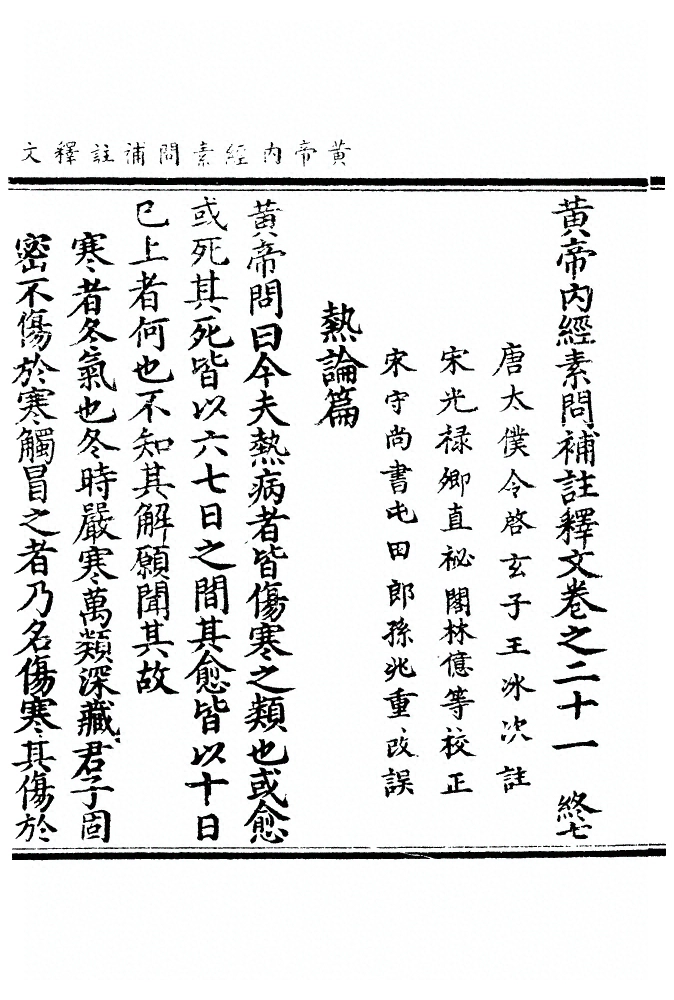 黄帝内經素問補註釋文
黄帝内經素問補註釋文卷之二十一　終七
唐太僕令啓玄子王冰次註
宋光禄卿直祕閣林億等校正
宋守尚書屯田郎孫兆重改誤
熱論篇
黄帝問曰今夫熱病者皆傷寒之類也或愈
或死其死皆以六七日之間其愈皆以十日
已上者何也不知其解願聞其故
寒者冬氣也冬時嚴寒萬類深藏君子固
密不傷於寒觸冒之者乃名傷寒其傷於